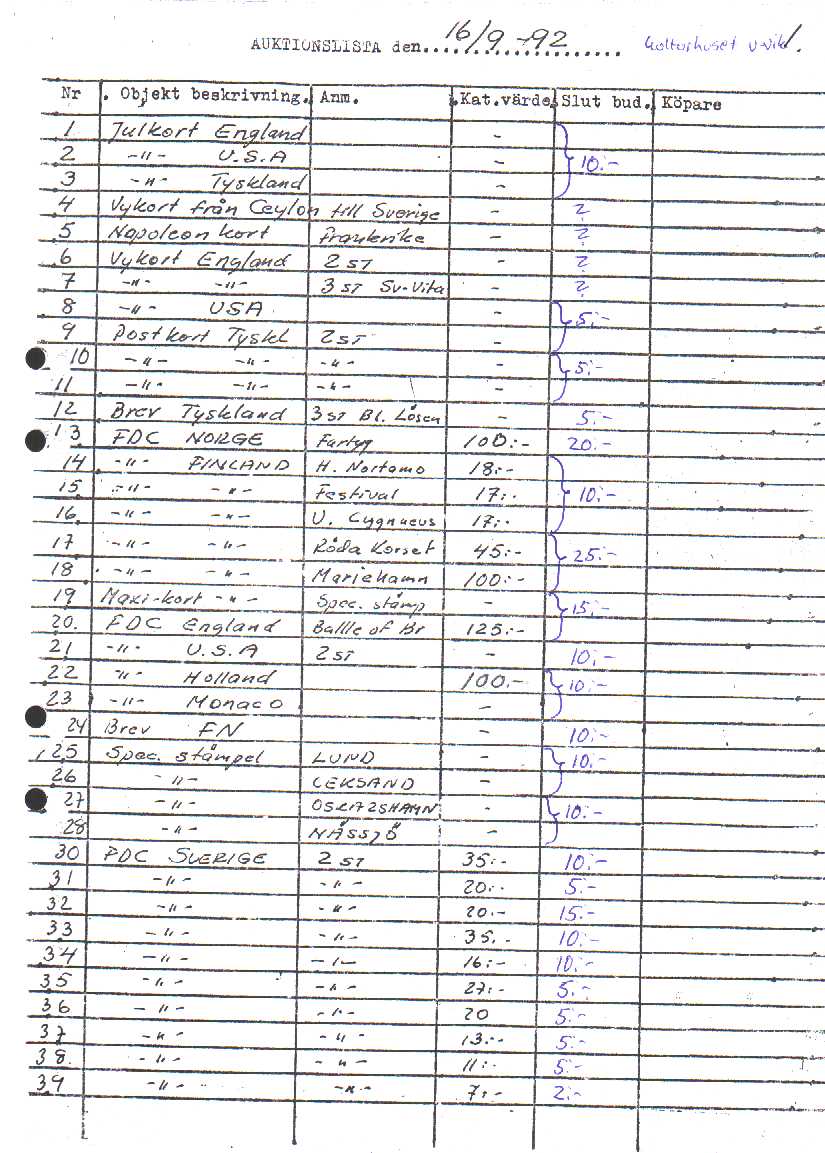 AUKTIONSLISTA den 16/9 -92 Kolturhuset U-vik 1.
Nr Objekt beskrivning. Anm. Kat.värde Slut bud. Köpare
1 Julkort England -
2 -"- U.S.A - 10:-
3 -"- Tyskland -
4 Vykort från Ceylon till Sverige - ?
5 Napoleon kort Frankrike - ?
6 Vykort England 2 st - ?
7 -"- -"- 3 st Sv-Vita - ?
8 -"- USA - 5:-
9 Postkort Tyskl 2 st -
10 -"- -"- -"- - 5:-
11 -"- -"- -"- -
12 Brev Tyskland 3 st Bl. Lösen - 5:-
13 FDC NORGE Fartyg 100:- 20:-
14 -"- FINLAND H. Nortamo 18:-
15 -"- -"- Festival 17:- 10:-
16 -"- -"- U. Cygnaeus 17:-
17 -"- -"- Röda Korset 45:- 25:-
18 -"- -"- Mariehamn 100:-
19 Maxi-kort -"- Spec. stämp - 15:-
20. FDC England Battle of Br 125:-
21 -"- U.S.A 2 st - 10:-
22 -"- Holland 100.- 10:-
23 -"- Monaco -
24 Brev FN - 10:-
25 Spec. stämpel LUND - 10:-
26 -"- LEKSAND -
27 -"- OSKARSHAMN - 10:-
28 -"- NÄSSJÖ -
30 FDC SVERIGE 2 st 35:- 10:-
31 -"- -"- 20:- 5:-
32 -"- -"- 20:- 15:-
33 -"- -"- 35:- 10:-
34 -"- -"- 16:- 10:-
35 -"- -"- 27:- 5:-
36 -"- -"- 20 5:-
37 -"- -"- 13:- 5:-
38. -"- -"- 11:- 5:-
39 -"- -"- 7:- 2:-